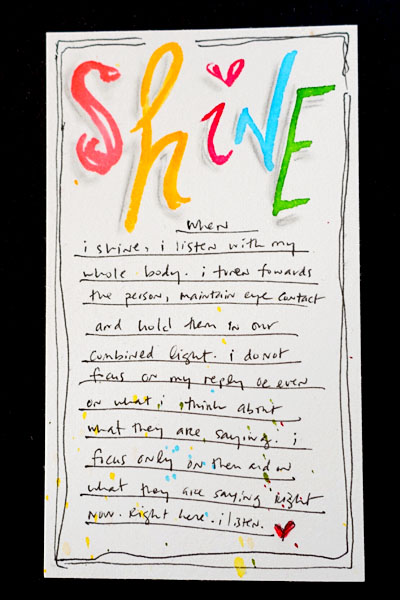 ShiNE
when
i shine, i listen with my
whole body. i turn towards
the person, maintain eye contact
and hold them in our
combined light. i do not
focus on my reply or even
on what i think about
what they are saying. i
focus only on them and on
what they are saying right
now. Right here. i listen.